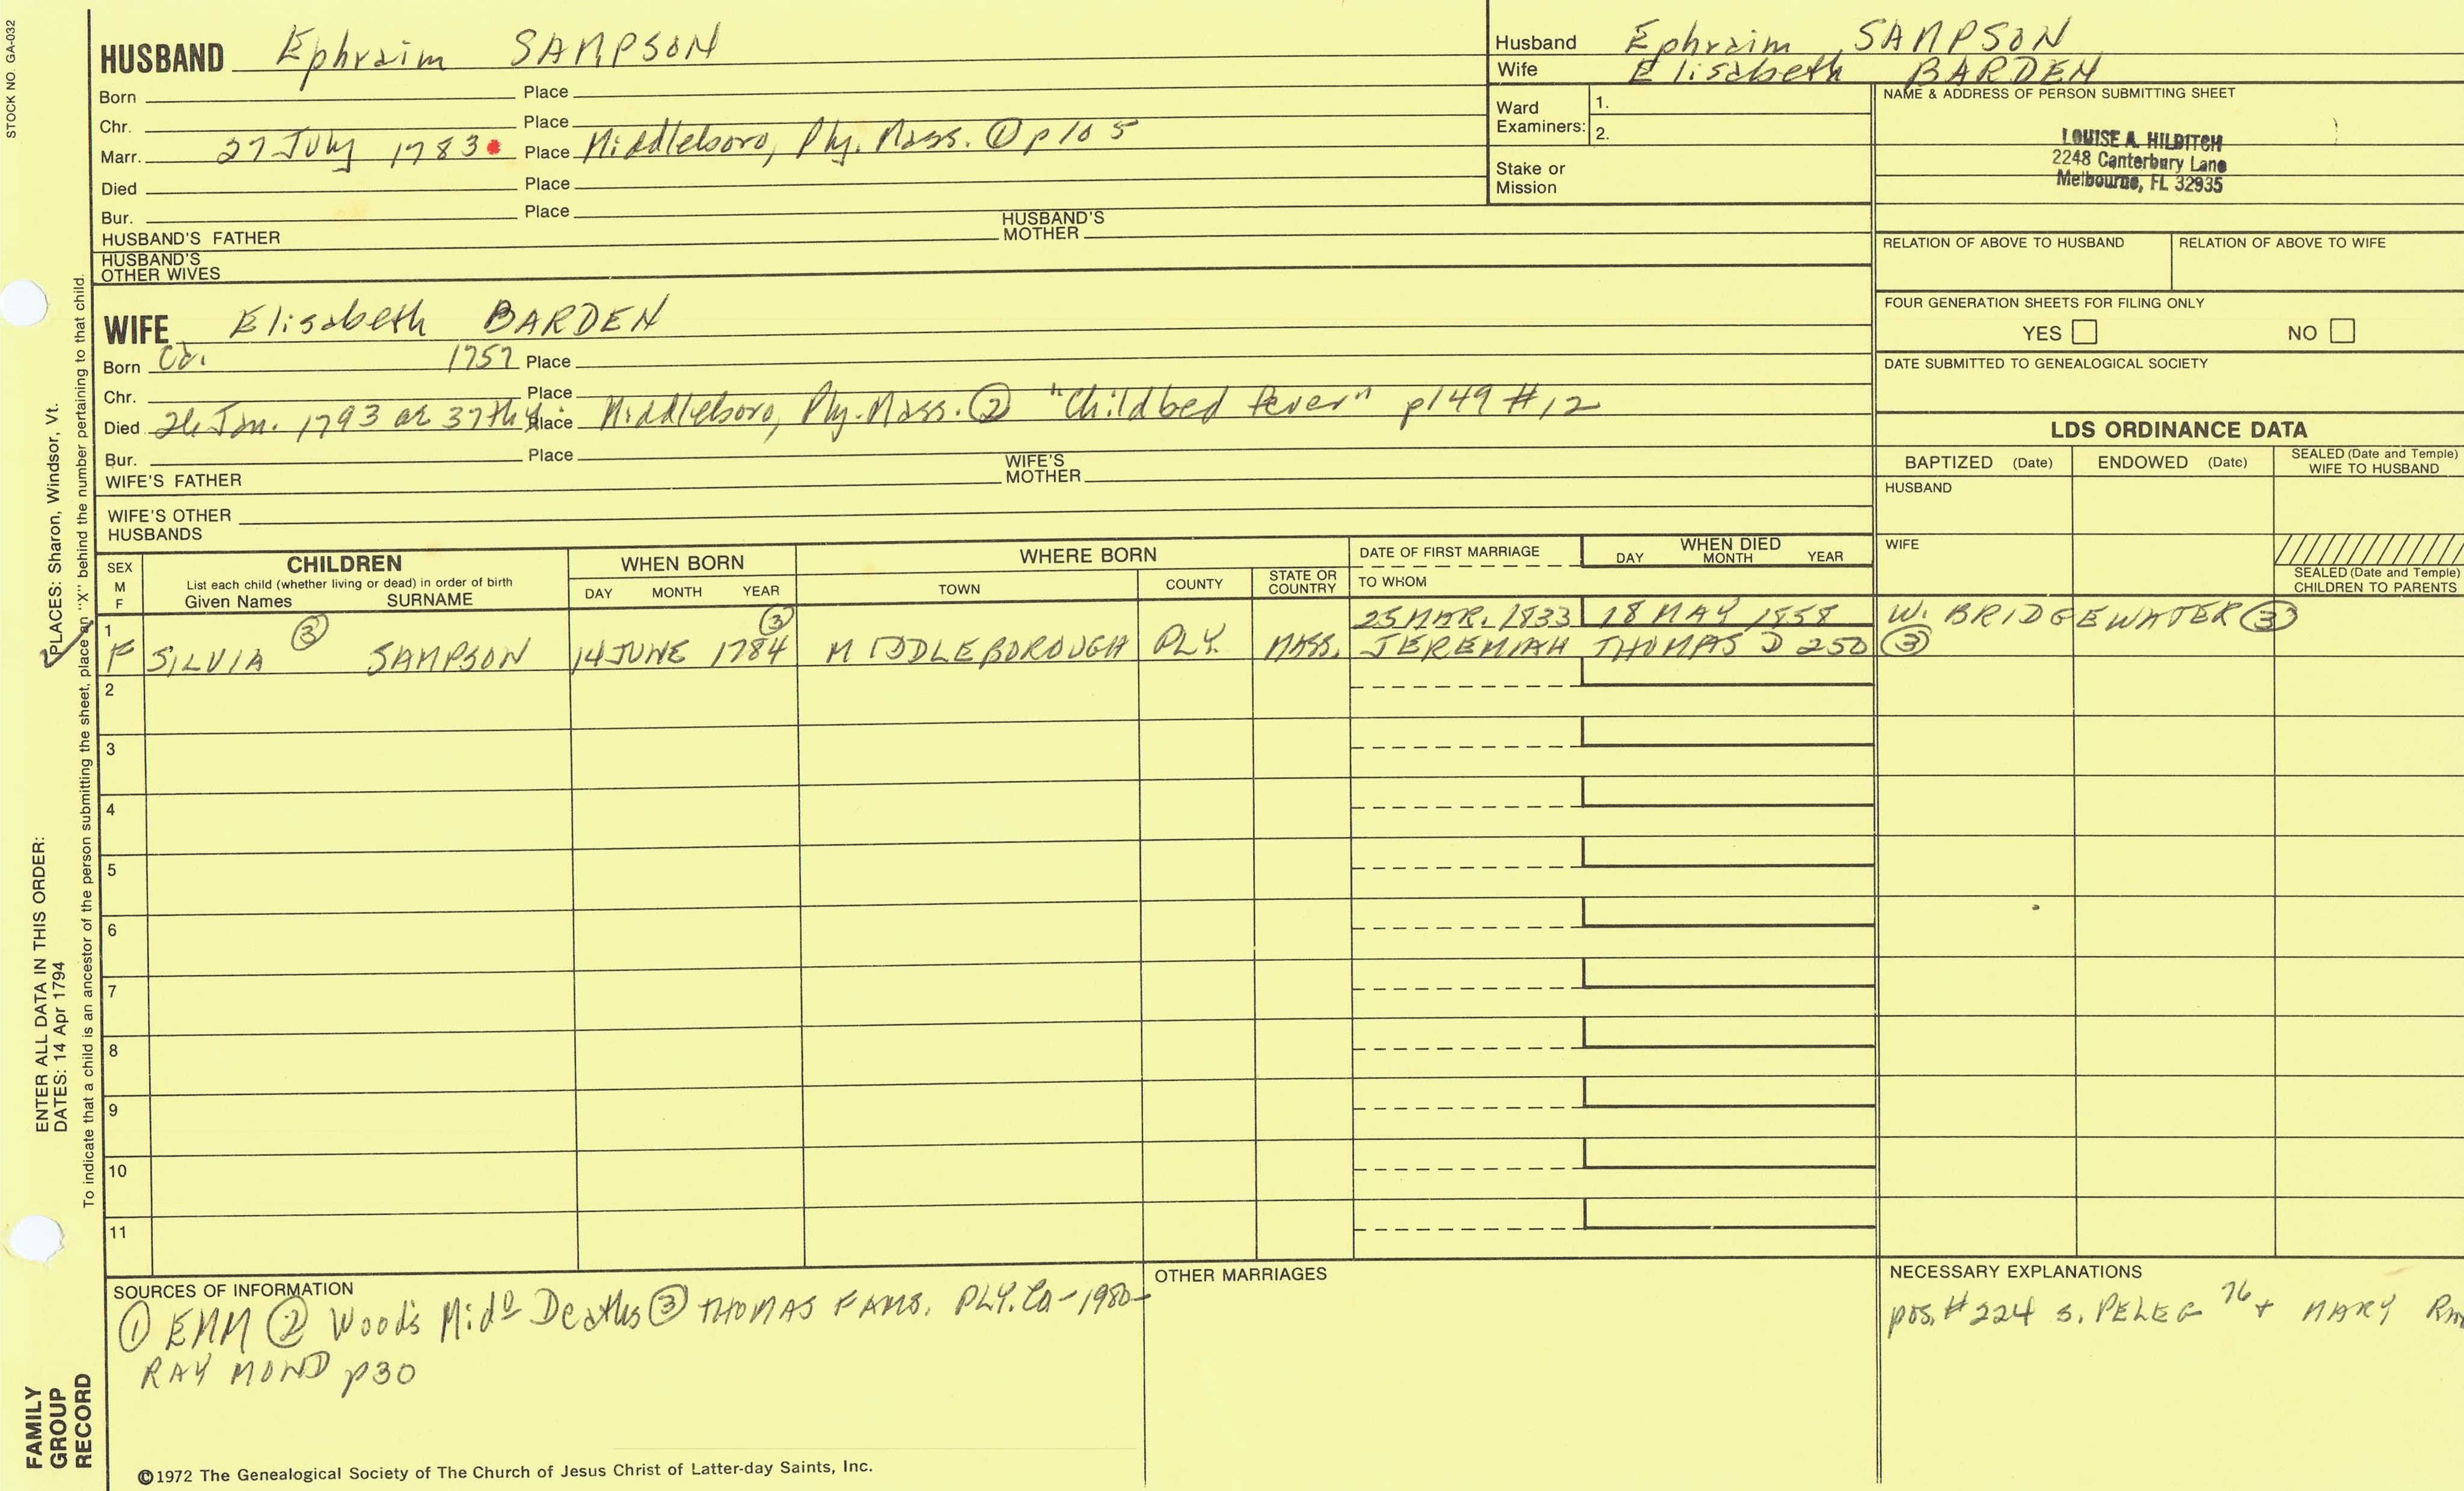 STOCK NO. GA-032
HUSBAND Ephraim SAMPSON
Born Place
Chr. Place
Marr. 27 July 1783 Place Middleboro, Ply. Mass. ① p105
Died Place
Bur. Place
HUSBAND'S FATHER HUSBAND'S MOTHER
HUSBAND'S OTHER WIVES
WIFE Elisabeth BARDEN
Born Ca. 1757 Place
Chr. Place
Died 26 Jan. 1793 ae 37th y. Place Middleboro, Ply. Mass. ② "Childbed fever" p149 #12
Bur. Place
WIFE'S FATHER WIFE'S MOTHER
WIFE'S OTHER HUSBANDS
Husband Ephraim SAMPSON
Wife Elisabeth BARDEN
Ward Examiners: 1.
2.
Stake or Mission
NAME & ADDRESS OF PERSON SUBMITTING SHEET
LOUISE A. HILDITCH
2248 Canterbury Lane
Melbourne, FL 32935
RELATION OF ABOVE TO HUSBAND RELATION OF ABOVE TO WIFE
FOUR GENERATION SHEETS FOR FILING ONLY
YES NO
DATE SUBMITTED TO GENEALOGICAL SOCIETY
LDS ORDINANCE DATA
BAPTIZED (Date) ENDOWED (Date) SEALED (Date and Temple) WIFE TO HUSBAND
HUSBAND
WIFE
SEALED (Date and Temple) CHILDREN TO PARENTS
SEX M F
CHILDREN
List each child (whether living or dead) in order of birth
Given Names SURNAME
WHEN BORN
DAY MONTH YEAR
WHERE BORN
TOWN COUNTY STATE OR COUNTRY
DATE OF FIRST MARRIAGE
TO WHOM
WHEN DIED
DAY MONTH YEAR
1 ③ ③ 25 MAR. 1833 18 MAY 1858 W. BRIDGEWATER ③
F SILVIA SAMPSON 14 JUNE 1784 MIDDLEBOROUGH PLY. MASS. JEREMIAH THOMAS D 250 ③
2
3
4
5
6
7
8
9
10
11
SOURCES OF INFORMATION
① EMM ② Wood's Mid⁰ Deaths ③ THOMAS FAMS. PLY. Co - 1980 -
RAYMOND p30
OTHER MARRIAGES
NECESSARY EXPLANATIONS
pos. #224 s. PELEG 76 + MARY
©1972 The Genealogical Society of The Church of Jesus Christ of Latter-day Saints, Inc.
ENTER ALL DATA IN THIS ORDER:
DATES: 14 Apr 1794 PLACES: Sharon, Windsor, Vt.
To indicate that a child is an ancestor of the person submitting the sheet, place an "X" behind the number pertaining to that child.
FAMILY
GROUP
RECORD